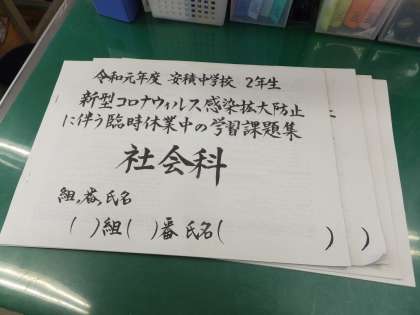 令和元年度 安積中学校 2年生
新型コロナウィルス感染拡大防止
に伴う臨時休業中の学習課題集
社会科
組、番、氏名
( )組( )番 氏名( )
)
)